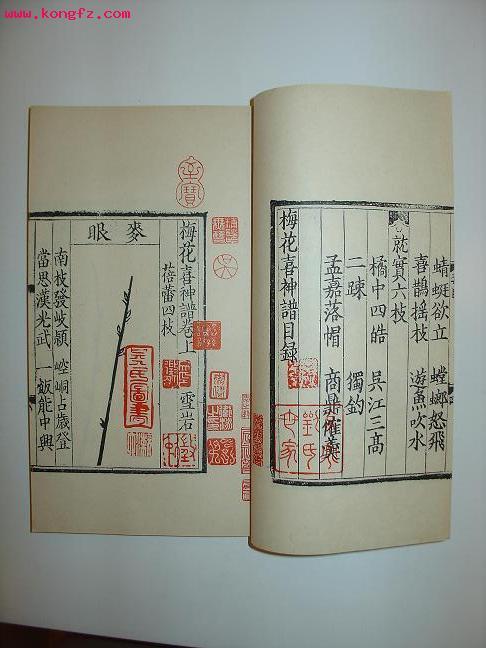 www.kongfz.com
蜻蜓欲立 螳螂怒飛
喜鵲搖枝 遊魚吹水
就實六枝
橘中四皓 吳江三高
二疎 獨釣
孟嘉落帽 商鼎催羹
梅花喜神譜目錄
梅花喜神譜卷上
蓓蕾四枝 雪岩
麥眼
南枝發岐穎 崆峒占歲登
當思漢光武 一飯能中興
吳氏圖書